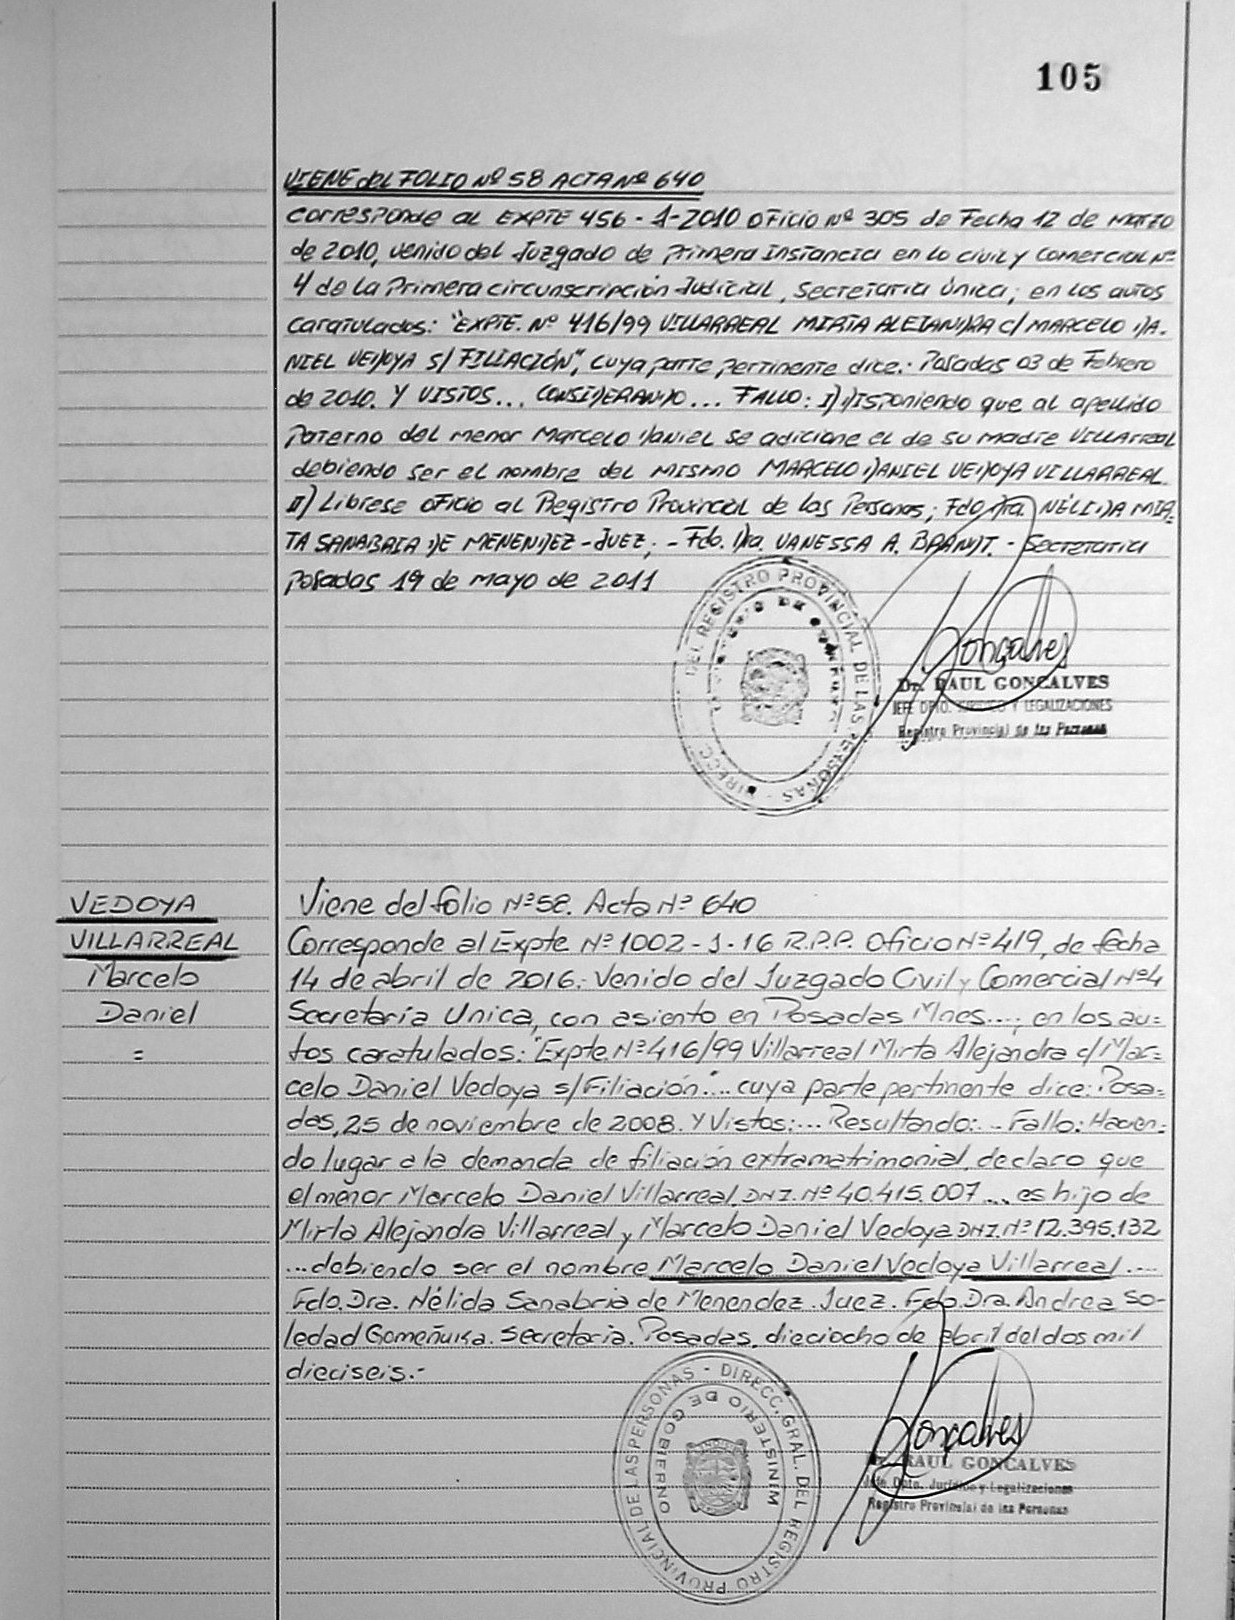 105
VIENE del FOLIO Nº 58 ACTA Nº 640
corresponde al EXPTE 456 - A-2010 OFicio Nº 305 de Fecha 12 de marzo
de 2010, venido del Juzgado de Primera Instancia en lo civil y Comercial Nº
4 de la Primera circunscripción Judicial, Secretaria única; en los autos
caratulados: "EXPTE. Nº 416/99 VILLARREAL MIRTA ALEJANDRA c/ MARCELO DA-
NIEL VEDOYA S/ FILIACIÓN", cuya parte pertinente dice: Posadas 03 de Febrero
de 2010. Y VISTOS... CONSIDERANDO... FALLO: I) Disponiendo que al apellido
paterno del menor Marcelo DANIEL se adicione el de su madre VILLARREAL
debiendo ser el nombre del mismo MARCELO DANIEL VEDOYA VILLARREAL.
II) Librese oficio al Registro Provincial de las Personas; Fdo Dra. NÉLIDA MIR-
TA SANABRIA DE MENENDEZ - JUEZ; - Fdo. Dra. VANESSA A. BRANDT. - Secretaria
Posadas 19 de mayo de 2011
DIRECC. DEL REGISTRO PROVINCIAL DE LAS PERSONAS
Gonçalves
Dr. RAUL GONCALVES
JEFE DPTO. JURIDICO Y LEGALIZACIONES
Registro Provincial de las Personas
VEDOYA
VILLARREAL
Marcelo
Daniel
=
Viene del folio Nº 58. Acta Nº 640
Corresponde al Expte Nº 1002 - J - 16 R.P.P. Oficio Nº 419, de fecha
14 de abril de 2016: Venido del Juzgado Civil y Comercial Nº4
Secretaría Unica, con asiento en Posadas Mnes...; en los au=
tos caratulados: "Expte. Nº 416/99 Villarreal Mirta Alejandra c/ Mar=
celo Daniel Vedoya s/Filiación"... cuya parte pertinente dice: Posa=
das, 25 de noviembre de 2008. Y Vistos:... Resultando:... Fallo: Hacien=
do lugar a la demanda de filiación extramatrimonial, declaro que
el menor Marcelo Daniel Villarreal, DNI. Nº 40.415.007... es hijo de
Mirta Alejandra Villarreal y Marcelo Daniel Vedoya DNI. Nº 12.395.132
...debiendo ser el nombre Marcelo Daniel Vedoya Villarreal....
Fdo. Dra. Nélida Sanabria de Menendez. Juez. Fdo. Dra. Andrea So-
ledad Gomeñuka. Secretaria. Posadas, dieciocho de abril del dos mil
dieciseis.-
DIRECC. GRAL. DEL REGISTRO PROVINCIAL DE LAS PERSONAS -
MINISTERIO DE GOBIERNO
Gonçalves
Dr. RAUL GONCALVES
Jefe Dpto. Jurídico y Legalizaciones
Registro Provincial de las Personas